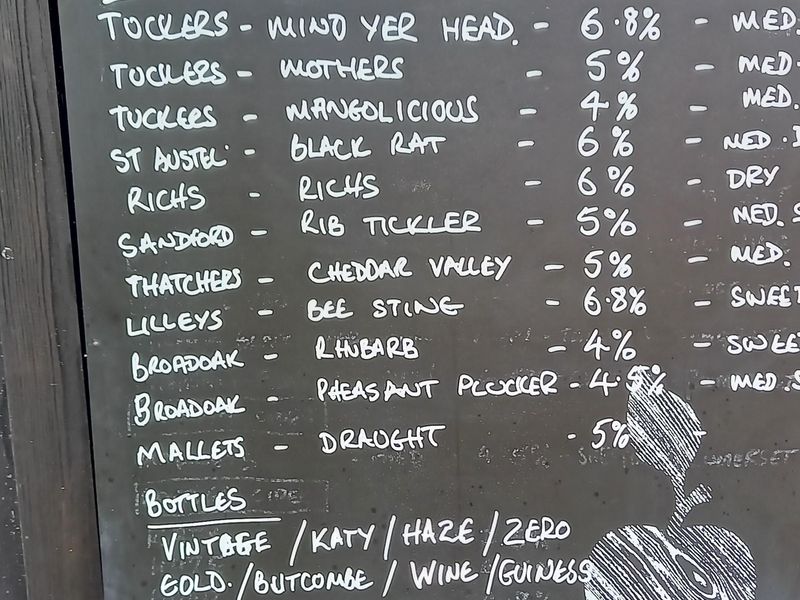 TUCKERS - MIND YER HEAD. - 6.8% - MED.
TUCKERS - MOTHERS - 5% - MED.
TUCKERS - MANGOLICIOUS - 4% - MED.
ST AUSTEL - BLACK RAT - 6% - MED.
RICHS - RICHS - 6% - DRY
SANDFORD - RIB TICKLER - 5% - MED. S
THATCHERS - CHEDDAR VALLEY - 5% - MED.
LILLEYS - BEE STING - 6.8% - SWEET
BROADOAK - RHUBARB - 4% - SWEE
BROADOAK - PHEASANT PLUCKER - 4.5% - MED.S
MALLETS - DRAUGHT - 5%
BOTTLES
VINTAGE / KATY / HAZE / ZERO
GOLD. / BUTCOMBE / WINE / GUINESS